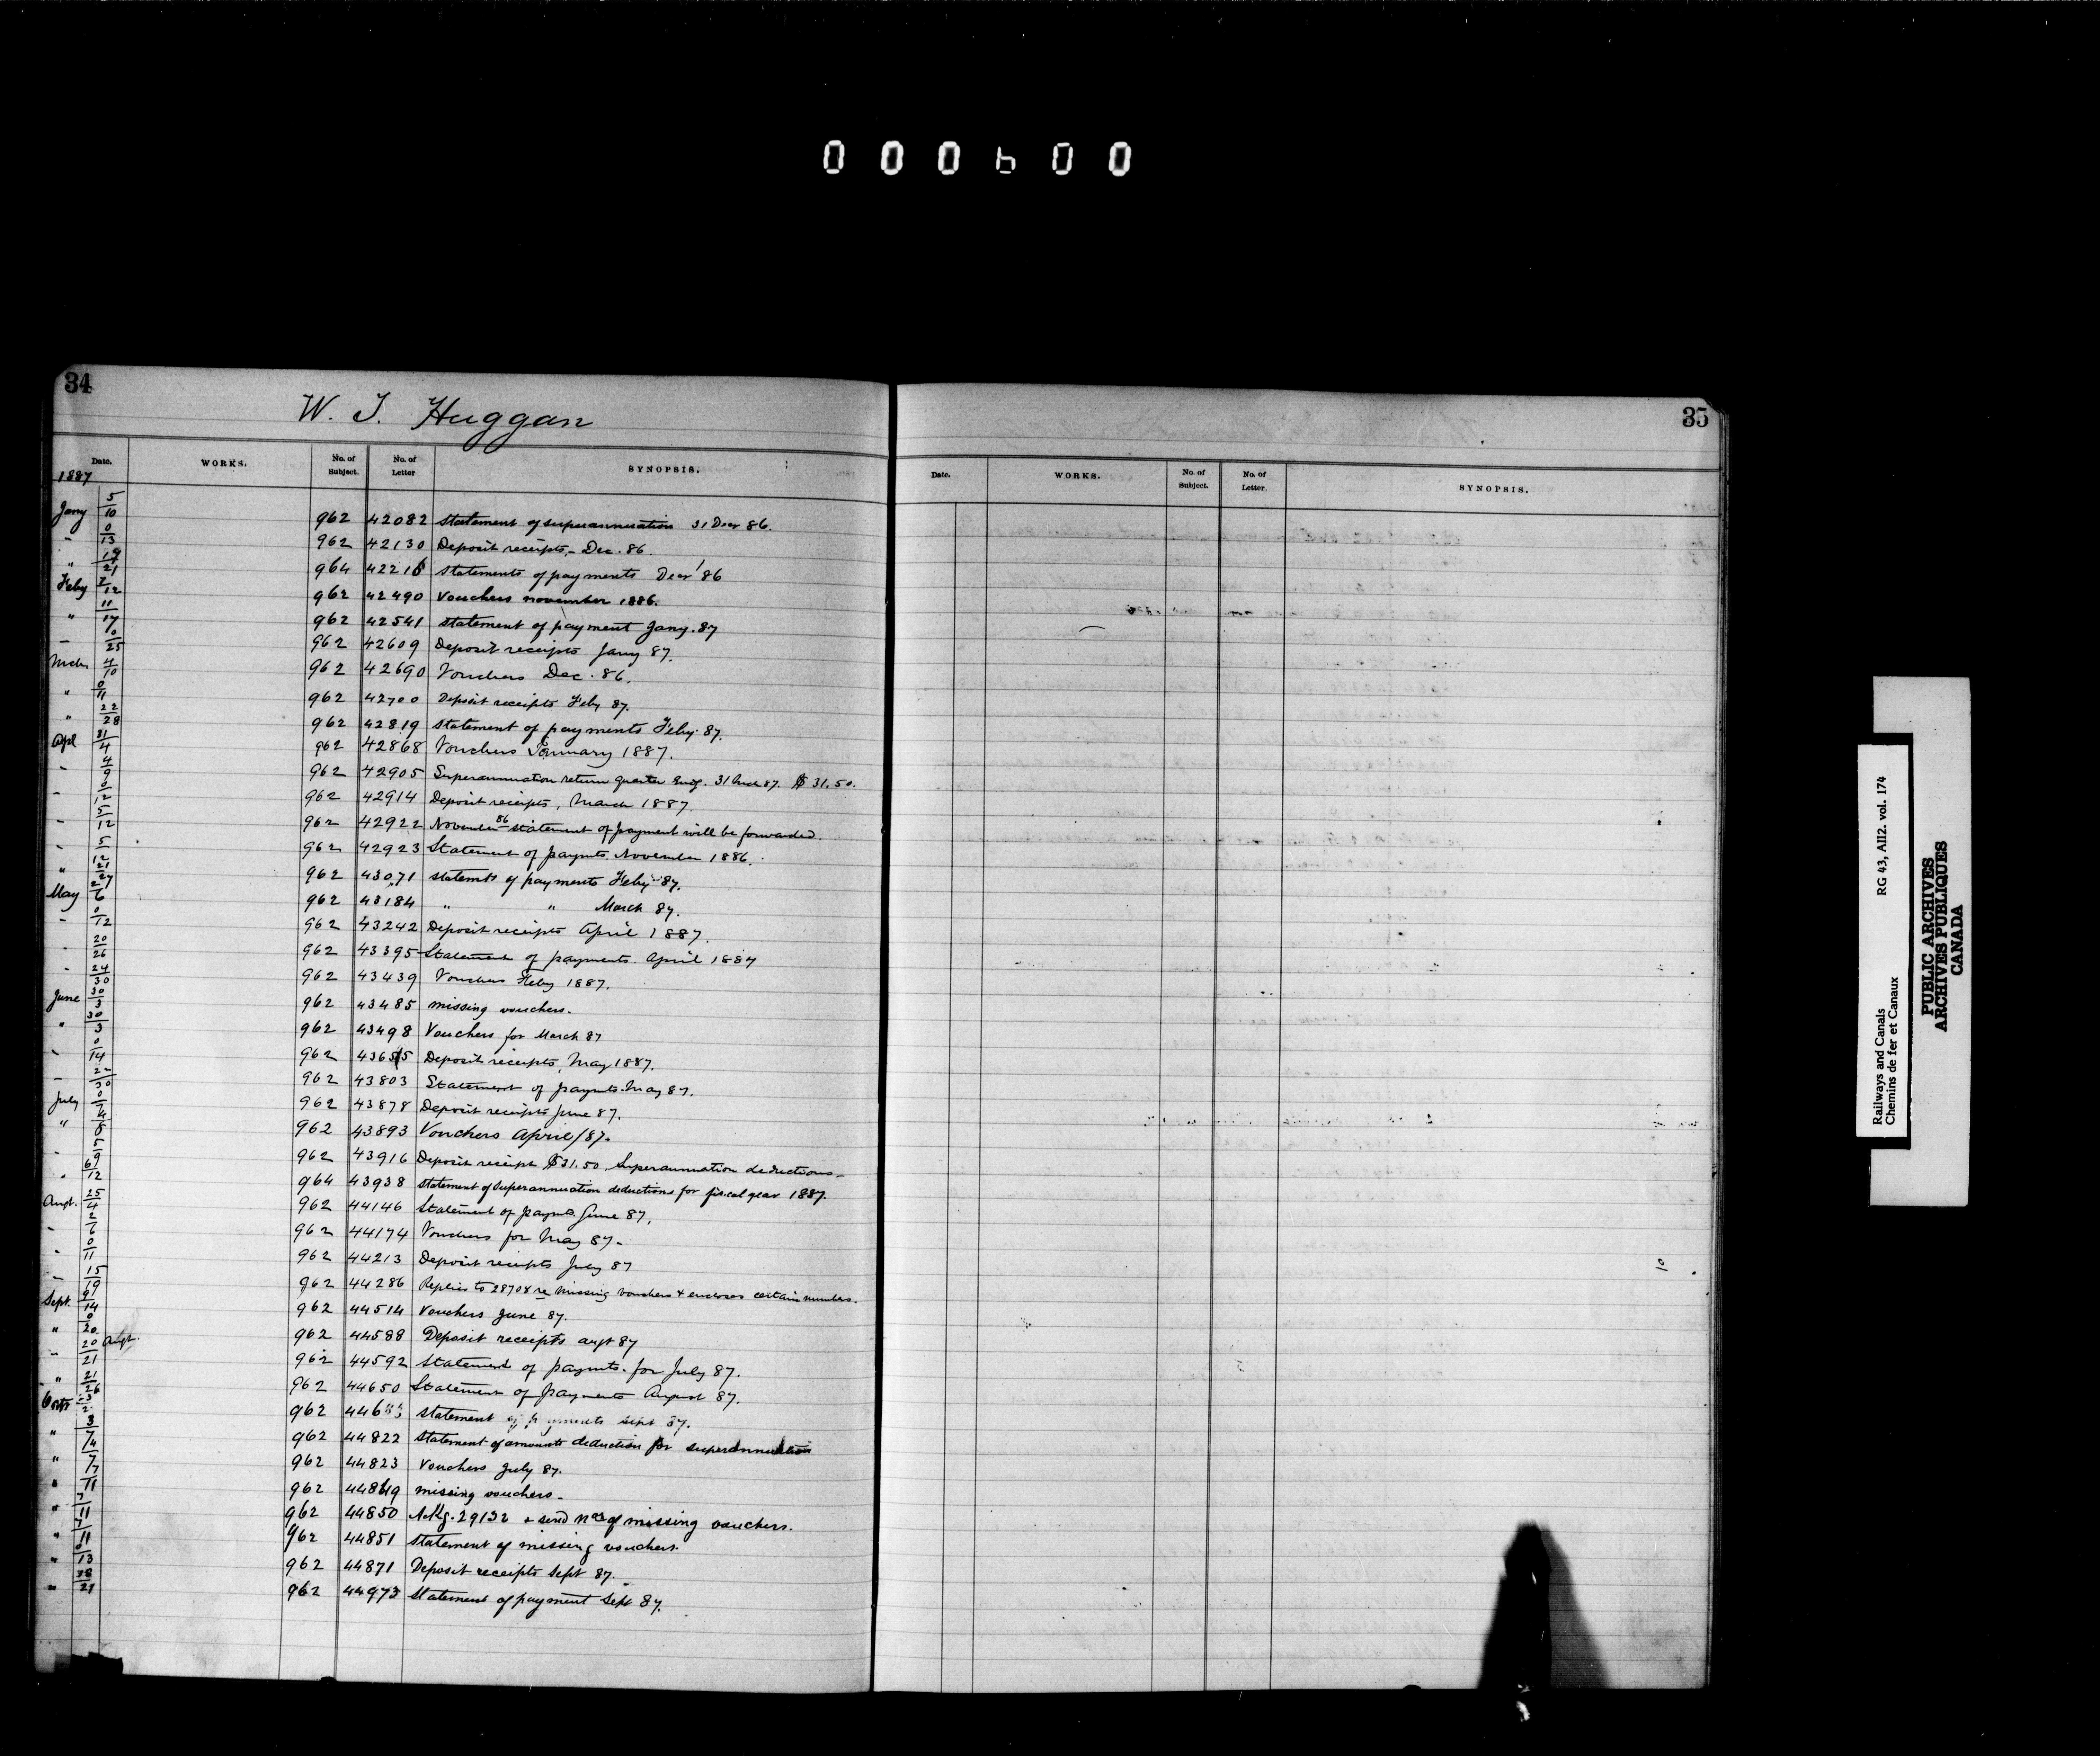 000600
34
W. J. Huggan
Date. WORKS. No. of Subject. No. of Letter SYNOPSIS.
1887
Jany 5/10 962 42082 Statement of superannuation 31 Decr 86.
" 0/13 962 42130 Deposit receipts, - Dec. 86.
" 19/21 964 42216 Statements of payments Decr '86
Feby 7/12 962 42490 Vouchers november 1886.
" 11/17 962 42541 statement of payment Jany. 87
" 0/25 962 42609 Deposit receipts Jany 87.
Mch 4/10 962 42690 Vouchers Dec. 86.
" 0/11 962 42700 Deposit receipts Feby 87.
" 22/28 962 42819 statement of payments Feby. 87.
Apl 31/4 962 42868 Vouchers January 1887.
" 4/9 962 42905 Superannuation return quarter Endg. 31 Mch 87. $31.50.
" 0/12 962 42914 Deposit receipts, March 1887.
" 5/12 962 42922 November 86 statement of payment will be forwarded.
" 5/12 962 42923 Statement of paymts November 1886.
" 21/27 962 43071 statemts of payments Feby 87.
May 27/6 962 43184 " " March 87.
" 0/12 962 43242 Deposit receipts April 1887.
" 20/26 962 43395 Statement of payments. April 1887
" 24/30 962 43439 Vouchers Feby 1887.
June 30/3 962 43485 missing vouchers.
" 30/3 962 43498 Vouchers for March 87
" 0/14 962 43655 Deposit receipts, May 1887.
" 22/30 962 43803 Statement of paymts. May 87.
July 0/4 962 43878 Deposit receipts June 87.
" 962 43893 Vouchers April/87.
" 5/9 962 43916 Deposit receipt $31.50. Superannuation deductions -
" 6/12 964 43938 statement of Superannuation deductions for fiscal year 1887.
Augt. 25/4 962 44146 Statement of paymts June 87.
" 2/6 962 44174 Vouchers for May 87.
" 0/11 962 44213 Deposit receipts July 87
" 15/19 962 44286 Replies to 28708 re missing vouchers & encloses certain numbers.
Sept. 9/14 962 44514 Vouchers June 87.
" 0/20 962 44588 Deposit receipts augt 87
" 20/21 Augt. 962 44592 Statement of paymts. for July 87.
" 21/26 962 44650 Statement of payments August 87.
Octr 962 statement of payments sept 87.
" 3/4 962 44822 Statement of amounts deduction for superannuation
" 7/7 962 44823 Vouchers July 87.
" 7/11 962 44849 missing vouchers.
" 7/11 962 44850 Ackg. 29132 & send nos of missing vouchers.
" 7/11 962 44851 Statement of missing vouchers.
" 0/13 962 44871 Deposit receipts Sept 87.
" 18/21 962 44973 Statement of payment Sept 87.
35
Date. WORKS. No. of Subject. No. of Letter. SYNOPSIS.
10
Railways and Canals RG 43, AII2. vol. 174
Chemins de fer et Canaux
PUBLIC ARCHIVES
ARCHIVES PUBLIQUES
CANADA